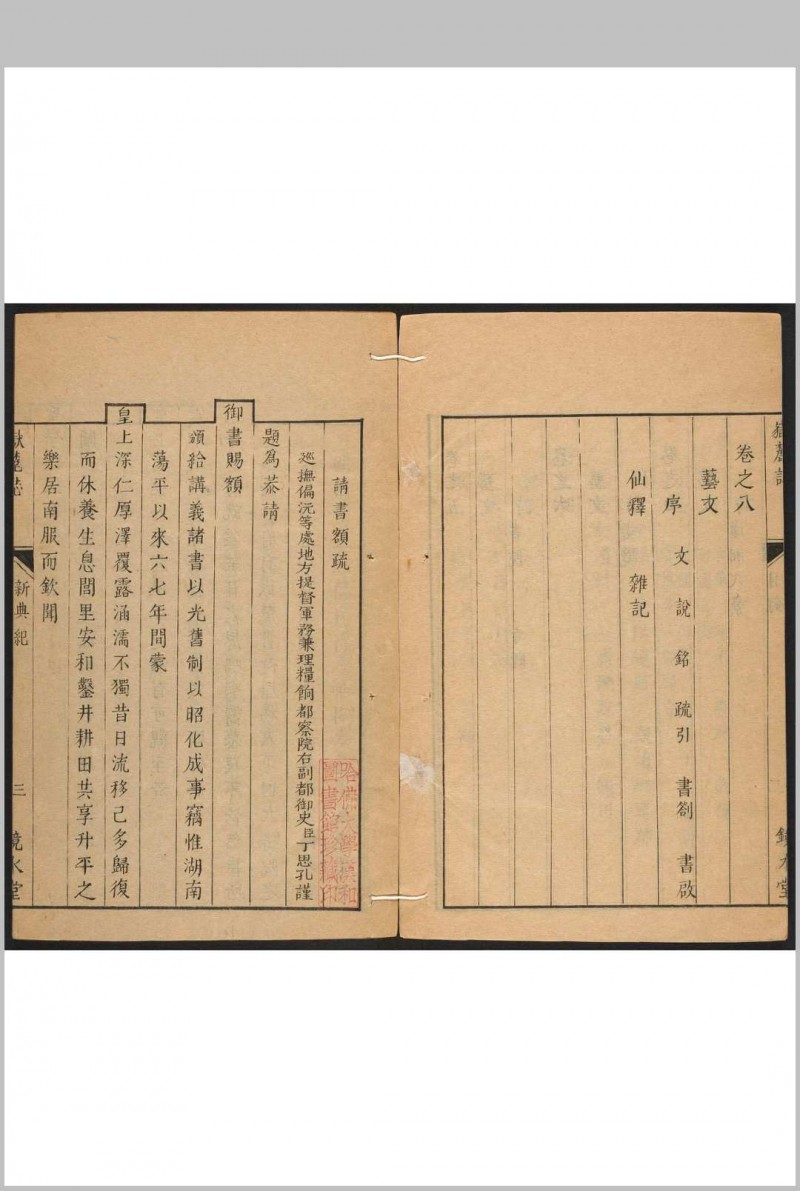 嶽麓誌
卷之八
藝文
序 文 說 銘 疏引 書劄 書啟
仙釋 雜記
鏡水堂
請書額疏
巡撫偏沅等處地方提督軍務兼理糧餉都察院右副都御史臣丁思孔謹
題為恭請
御書賜額
頒給講義諸書以光舊制以昭化成事竊惟湖南
蕩平以來六七年間蒙
皇上深仁厚澤覆露涵濡不獨昔日流移己多歸復
而休養生息閭里安和鑿井耕田共享升平之
樂居南服而欽聞
嶽麓誌
新典紀
三
鏡水堂
哈佛大學漢和
圖書館珍藏印